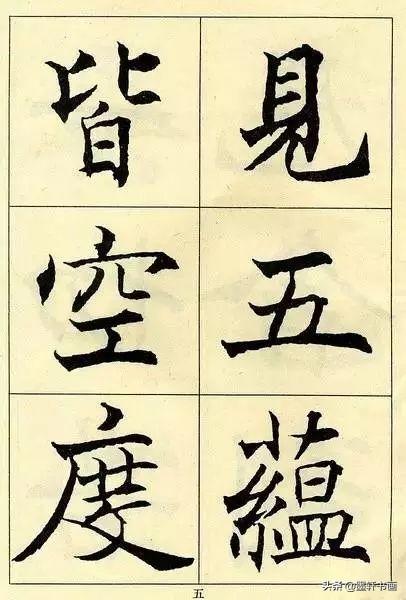 見五蘊
皆空度
五
头条@墨轩书画